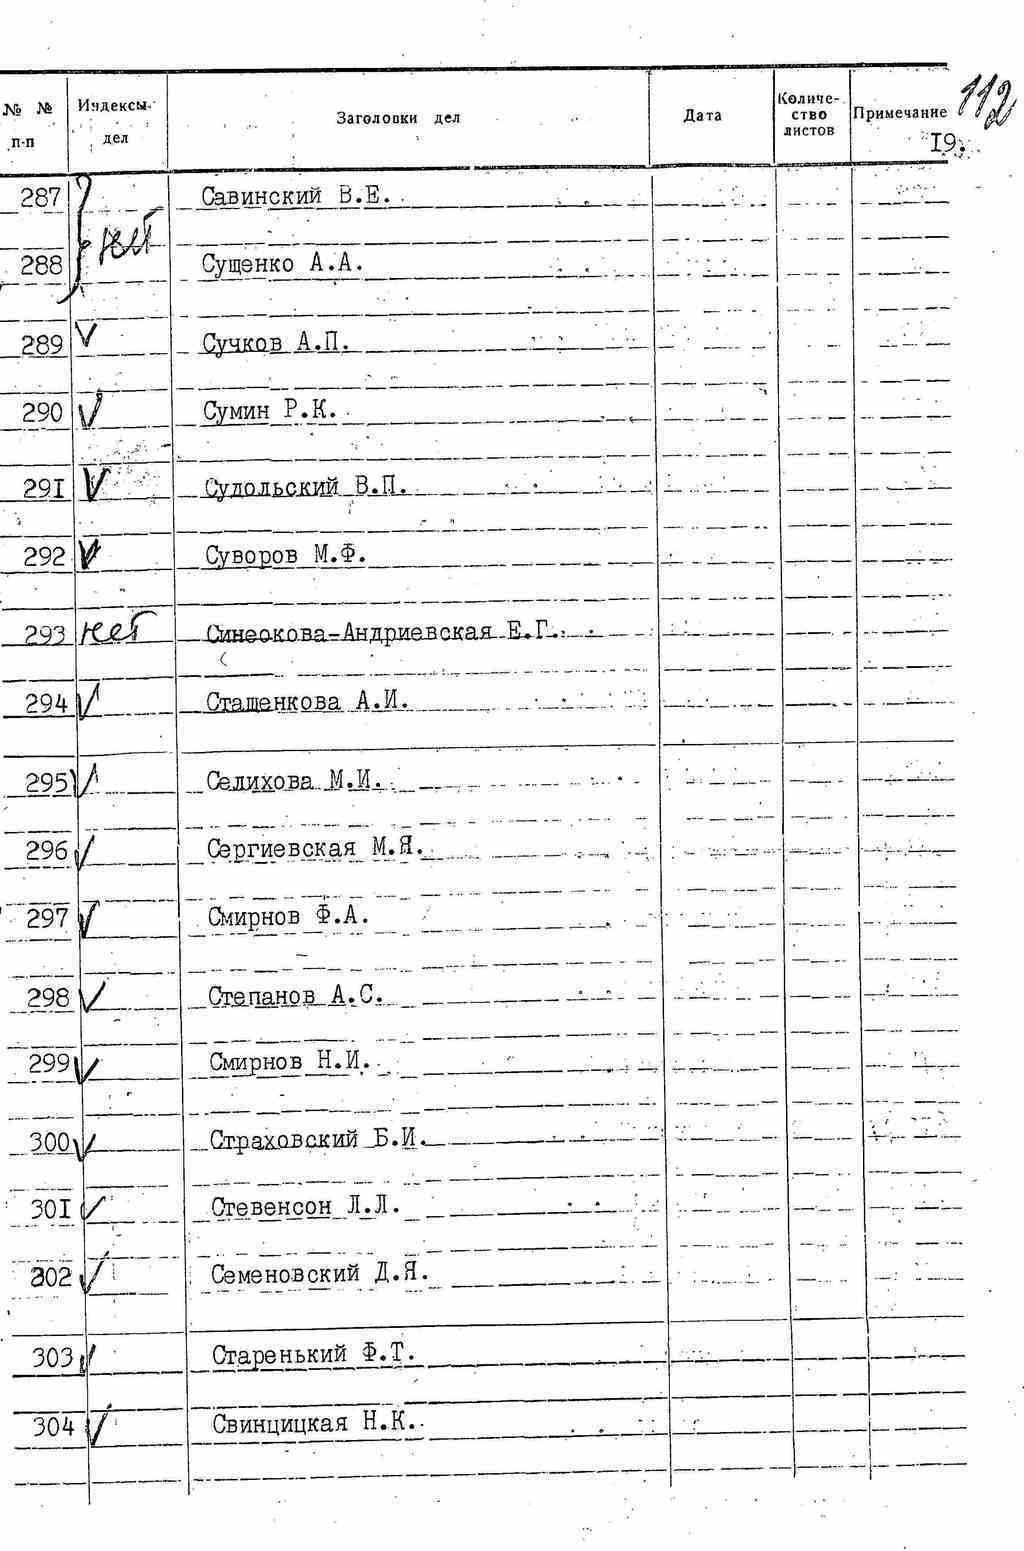 112
№ № п-п Индексы дел Заголовки дел Дата Количество листов Примечание
19.
287 Савинский В.Е.
нет
288 Сущенко А.А.
289 V Сучков А.П.
290 V Сумин Р.К.
291 V Судольский В.П.
292 V Суворов М.Ф.
293 нет Синеокова-Андриевская Е.Г.
294 V Сташенкова А.И.
295 V Селихова М.И.
296 V Сергиевская М.Я.
297 V Смирнов Ф.А.
298 V Степанов А.С.
299 V Смирнов Н.И.
300 V Страховский Б.И.
301 V Стевенсон Л.Л.
302 V Семеновский Д.Я.
303 V Старенький Ф.Т.
304 V Свинцицкая Н.К.